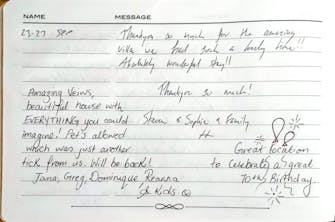 NAME MESSAGE
23-27 Sep Thankyou so much for the amazing
villa we had such a lovely time!!
Absolutely wonderful stay!!
Thankyou so much!
Steve & Sophie & Family
Amazing Veiws,
beautiful house with
EVERYTHING you could
imagine! Pet's allowed
which was just another
tick from us. Will be back!
Jana, Greg, Dominique Reanna
& Kids.
Great location
to Celebrate a great
70th Birthday.